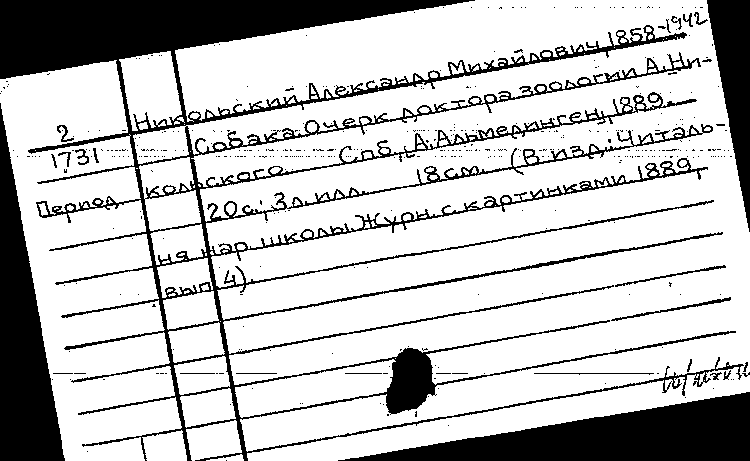 Никольский, Александр Михайлович, 1858-1942
2
1731
Собака. Очерк доктора зоологии А. Ни-
кольского. Спб., А. Альмединген, 1889.
Период.
20 с.; 3 л. илл. 18 см. (В изд.: Читаль-
ня нар. школы. Журн. с картинками 1889,
вып. 4).